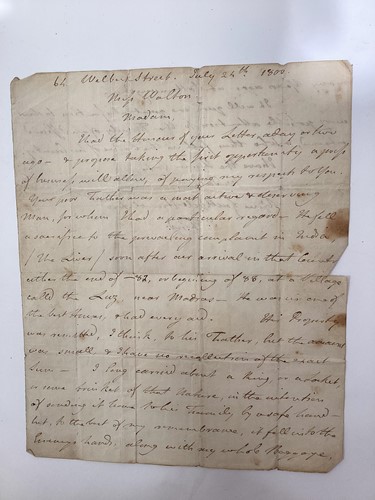 64 Welbeck Street. July 24th 1800.
Miss Walton
Madam,
I had the Honour of your Letter a day or two
ago - & propose taking the first opportunity a press
of business will allow, of paying my respects to You
Your poor Father was a most active & deserving
Man, for whom I had a particular regard - He fell
a sacrifice to the prevailing complaint in India
(the Liver) soon after our arrival in that Country
either the end of 82, or beginning of 83, at a Village
called the Luz, near Madras - He was in one of
the best houses, & had every aid. His Property
was remitted, I think, to his Father, but the amount
was small & I have no recollection of the exact
Sum - I long carried about a Ring, or a Locket,
or some trinket of that Nature, in the intention
of sending it home to his Family by a safe hand -
but, to the best of my remembrance, it fell into the
Enemy's hands, along with my whole Baggage,